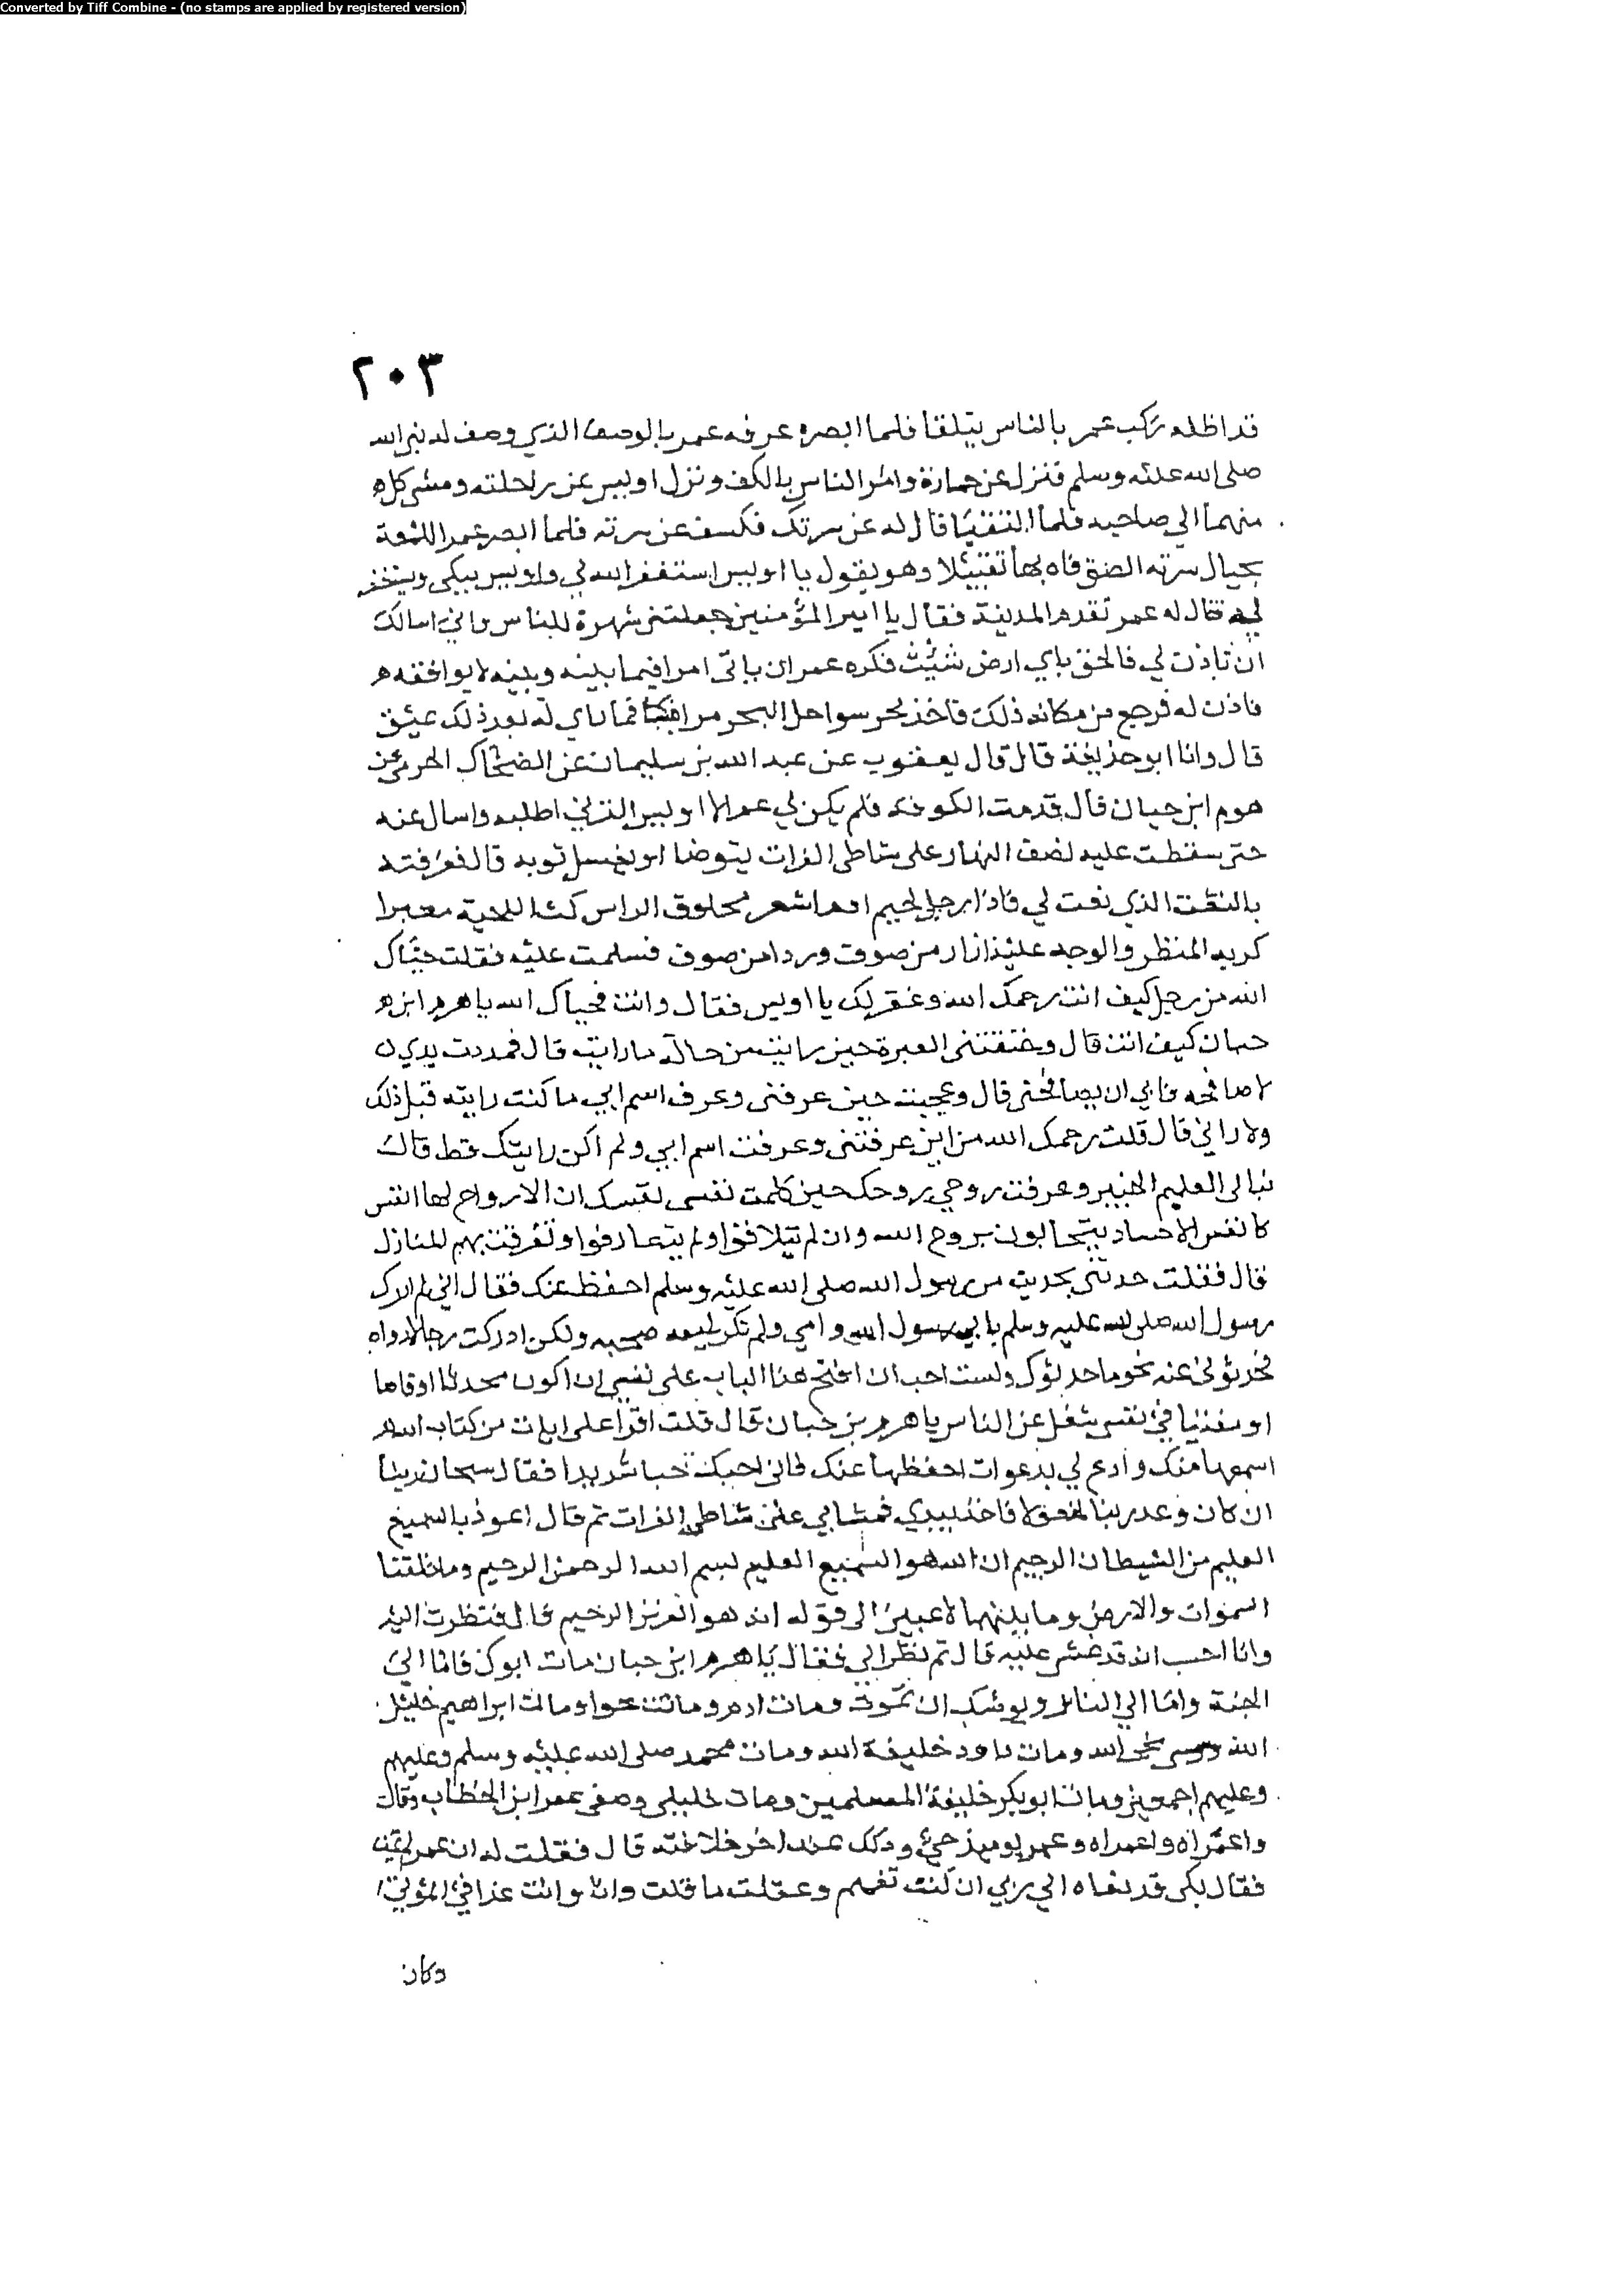 Converted by Tiff Combine - (no stamps are applied by registered version)
٢٠٣
قد اظله ركب عمر بالناس يتلقا فلما ابصره عرفه عمر بالوصف الذي وصف له نبي الله
صلى الله عليه وسلم فنزل عن حماره وامر الناس بالكف ونزل اويس عن راحلته ومشى كل
منهما الي صاحبه فلما التقيا قال له عن سرتك فكشف عن سرته فلما ابصر عمر اللمعة
بحيال سرته الصق فاه بها تقبيلا وهو يقول يا اويس استغفر الله لي واويس يبكي
له قال له عمر تقدم المدينة فقال يا امير المؤمنين جعلتني شهرة للناس واني اسالك
ان تاذن لي فالحق باي ارض شئت فكره عمر ان ياتي امرا فيما بينه وبينه لا يوافقه
فاذن له فرجع من مكانه ذلك فاخذ نحو سواحل البحر مرابطا
قال وانا ابو حذيفة قال قال يعقوب عن عبد الله بن سليمان عن الضحاك الجرمي عن
هرم ابن حيان قال قدمت الكوفة فلم يكن لي عم الا اويس القرني اطلبه واسال عنه
حتى سقطت عليه نصف النهار على شاطي الفرات يتوضا او يغسل ثوبه قال فعرفته
بالنعت الذي نعت لي فاذا برجل لحيم ادم اشعر محلوق الراس كث اللحية مغبرا
كريه المنظر والوجه عليه ازار من صوف وردا من صوف فسلمت عليه فقلت حياك
الله من رجل كيف انت رحمك الله وغفر لك يا اويس فقال وانت فحياك الله يا هرم ابن
حيان كيف انت قال وخنقتني العبرة حين رايت من حاله ما رايت قال فمددت يدي
لاصافحه فابي ان يصافحني قال وعجبت حين عرفني وعرف اسم ابي ما كنت رايته قبل ذلك
ولا راني قال قلت رحمك الله من اين عرفتني وعرفت اسم ابي ولم اكن رايتك قط قال
نباني العليم الخبير وعرفت روحي روحك حين كلمت نفسي نفسك ان الارواح لها انفس
كانفس الاجساد يتحابون بروح الله وان لم يتلاقوا ولم يتعارفوا وتفرقت بهم المنازل
قال فقلت حدثني بحديث من رسول الله صلى الله عليه وسلم احفظه عنك فقال اني لم ادرك
رسول الله صلى الله عليه وسلم بابي رسول الله وامي ولم تكن لي معه صحبة ولكن ادركت رجالا راوه
فحدثوني عنه نحو ما حدثوك ولست احب ان افتح هذا الباب على نفسي ان اكون محدثا او قاصا
او مفتيا في نفسي شغل عن الناس يا هرم بن حيان قال قلت اقرا على ايات من كتاب الله
اسمعها منك وادع لي بدعوات احفظها عنك فاني احبك حبا شديدا فقال سبحان ربنا
ان كان وعد ربنا لمفعولا فاخذ بيدي فمشا بي على شاطي الفرات ثم قال اعوذ بالسميع
العليم من الشيطان الرجيم ان الله هو السميع العليم بسم الله الرحمن الرحيم وما خلقنا
السموات والارض وما بينهما لاعبين الى قوله انه هو العزيز الرحيم قال فنظرت اليه
وانا احسب انه قد غشي عليه قال ثم نظر الي فقال يا هرم ابن حيان مات ابوك فاما الى
الجنة واما الي النار ويوشك ان تموت ومات ادم وماتت حوا ومات ابراهيم خليل
الله وموسى نجي الله ومات داود خليفة الله ومات محمد صلى الله عليه وسلم وعليهم
وعليهم اجمعين ومات ابو بكر خليفة المسلمين ومات خليلي وصفي عمر ابن الخطاب وقال
واعمراه واعمراه وعمر يوميذ حي وذلك عند اخر خلافته قال فقلت له ان عمر
فقال بكى قد نعاه الي ربي ان كنت تفهم وعقلت ما قلت وانا وانت غدا في الموتى
وكان